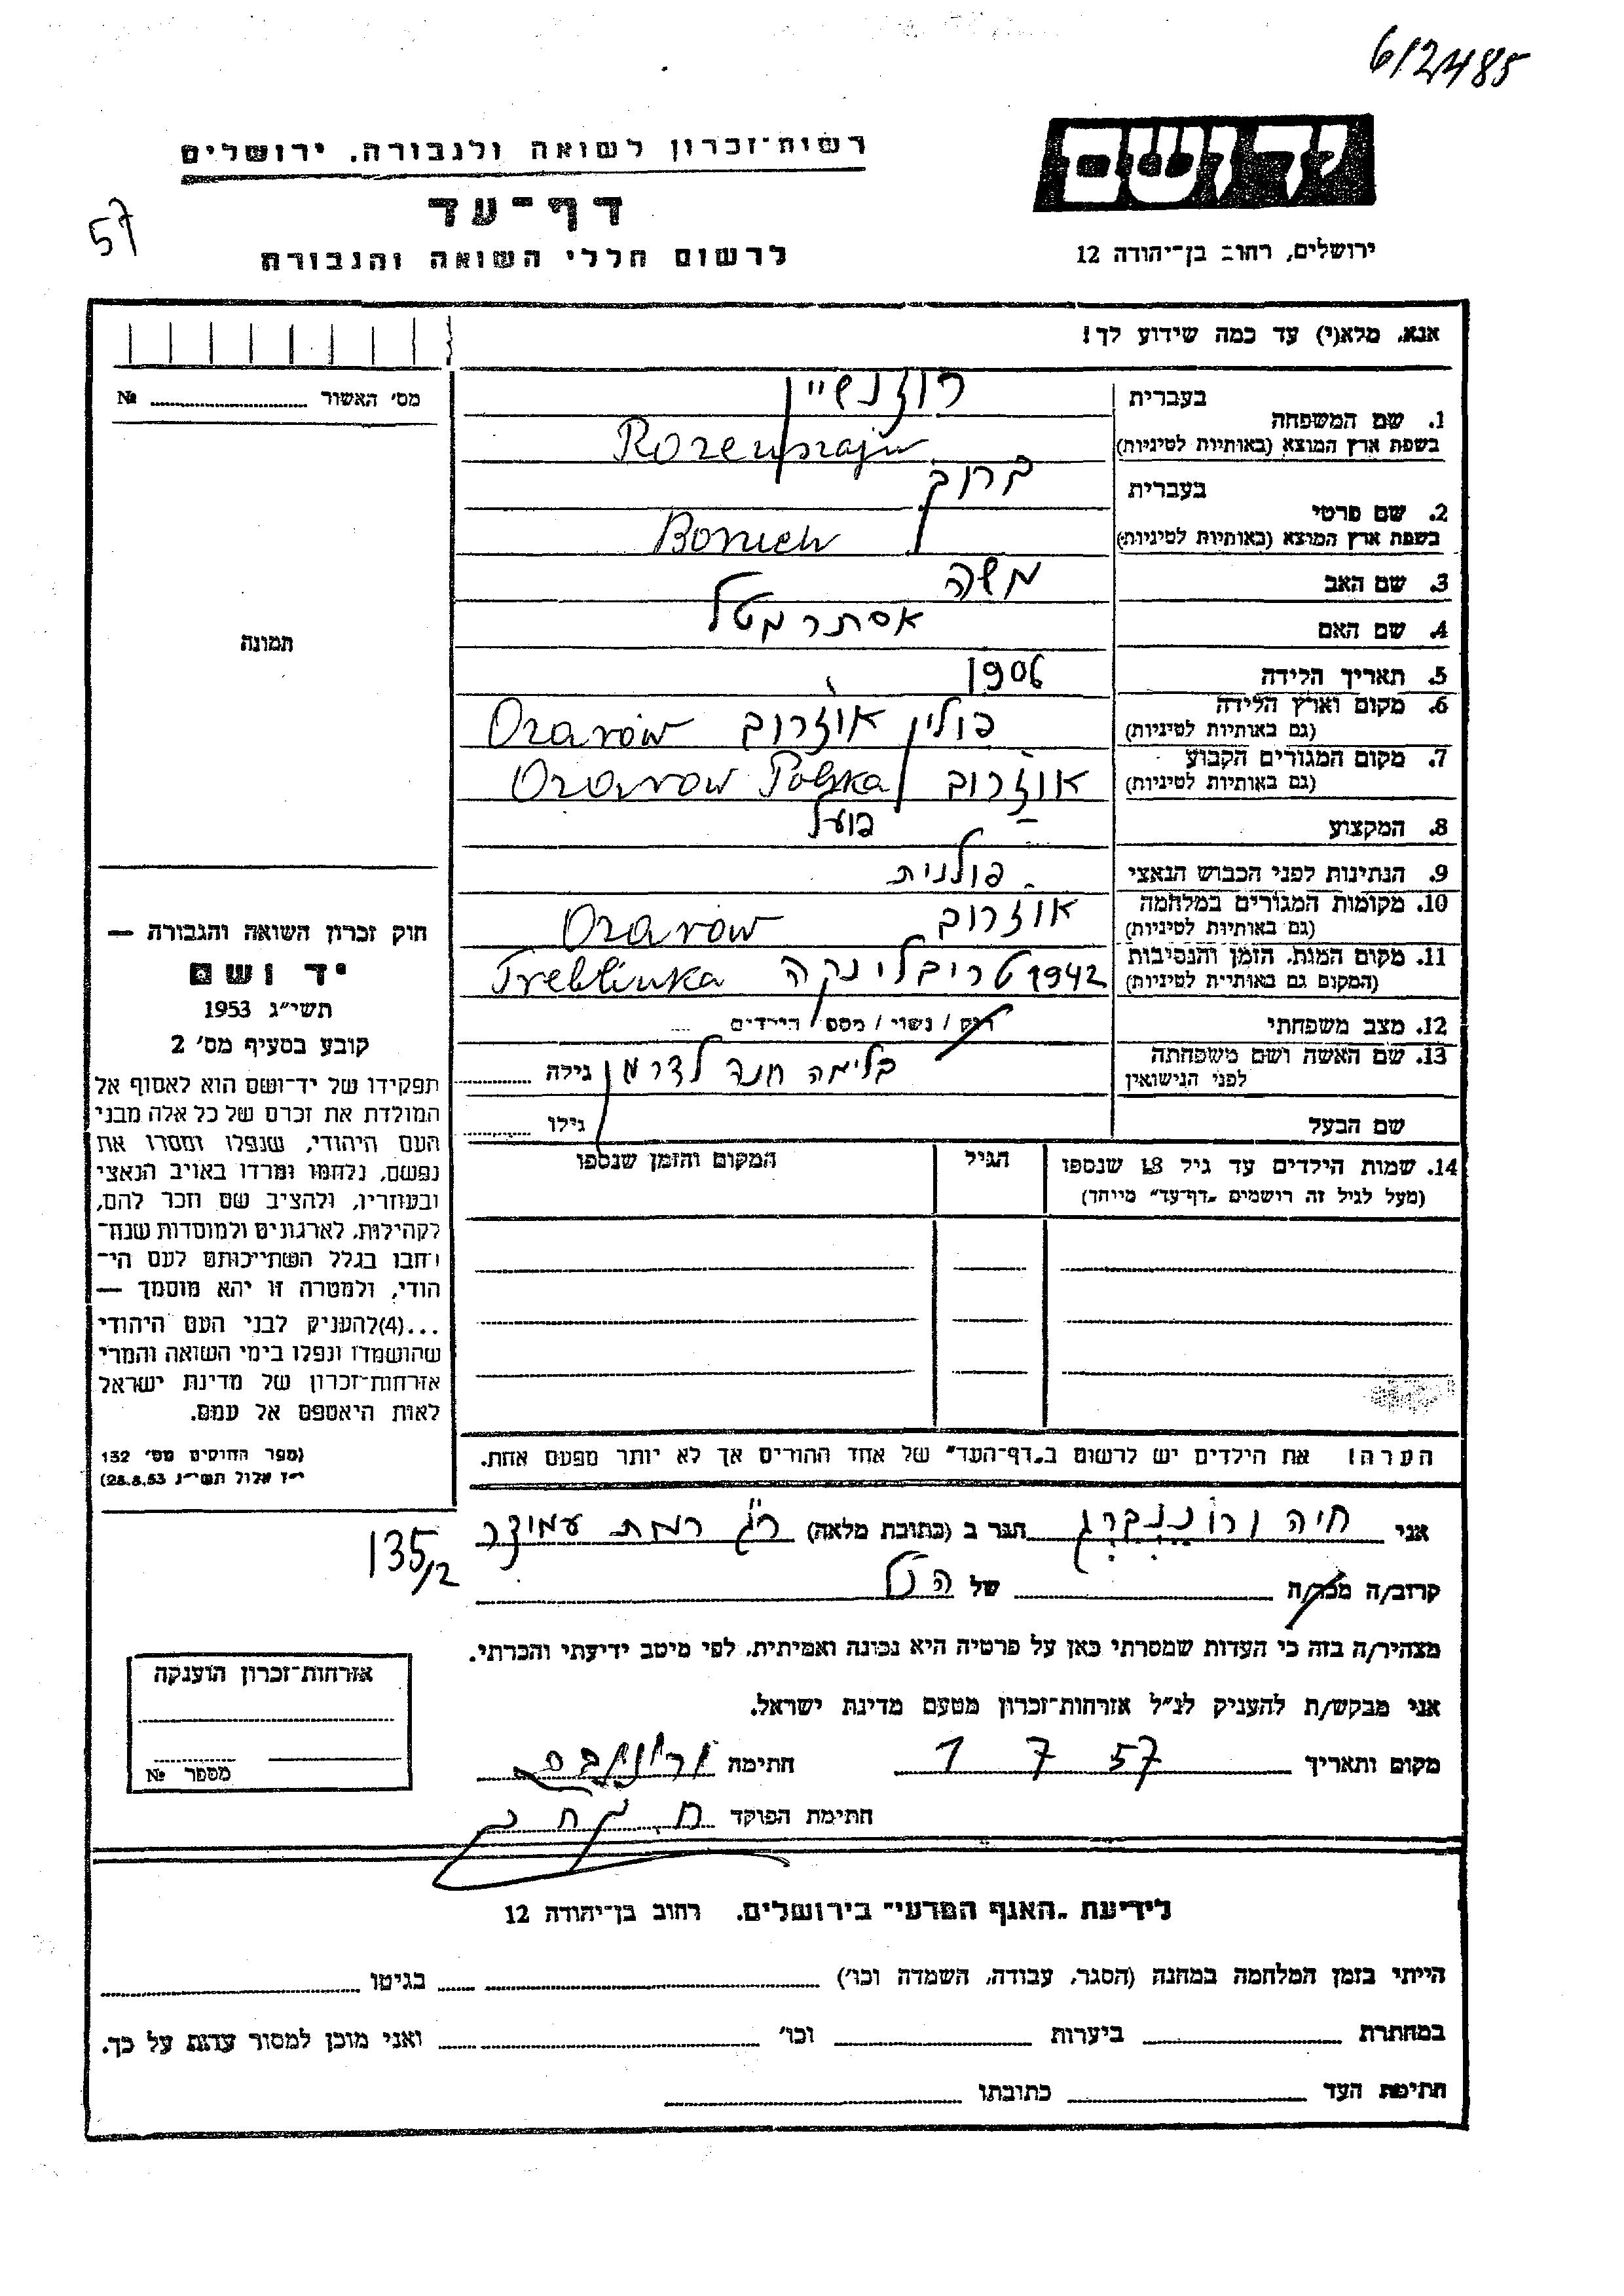 6/2485
רשות־זכרון לשואה ולגבורה. ירושלים
יד ושם
דף־עד
57
לרשום חללי השואה והגבורה
ירושלים, רחוב בן־יהודה 12
אנא. מלא(י) עד כמה שידוע לך!
מס' האשור № 
1. שם המשפחה בעברית רוזנשיין
בשפת ארץ המוצא (באותיות לטיניות) Rozenszajn
2. שם פרטי בעברית ברוך
בשפת ארץ המוצא (באותיות לטיניות) Boruch
3. שם האב משה
4. שם האם אסתר
5. תאריך הלידה 1906
6. מקום וארץ הלידה (גם באותיות לטיניות) פולין אוזרוב Ozarów
7. מקום המגורים הקבוע (גם באותיות לטיניות) אוזרוב Ozarow Polska
8. המקצוע פועל
9. הנתינות לפני הכבוש הנאצי פולנית
10. מקומות המגורים במלחמה (גם באותיות לטיניות) אוזרוב Ozarów
11. מקום המות. הזמן והנסיבות (המקום גם באותיות לטיניות) 1942 טריבלינקה Treblinka
12. מצב משפחתי רוק / נשוי / מספר הילדים
13. שם האשה ושם משפחתה לפני הנישואין בלימה חנה לדרמן גילה
שם הבעל גילו
14. שמות הילדים עד גיל 18 שנספו הגיל המקום והזמן שנספו
(מעל לגיל זה רושמים "דף־עד" מיוחד)
תמונה
חוק זכרון השואה והגבורה —
יד ושם
תשי"ג 1953
קובע בסעיף מס' 2
תפקידו של יד־ושם הוא לאסוף אל
המולדת את זכרם של כל אלה מבני
העם היהודי, שנפלו ומסרו את
נפשם, נלחמו ומרדו באויב הנאצי
ובעוזריו, ולהציב שם וזכר להם,
לקהילות, לארגונים ולמוסדות שנח־
רבו בגלל השתייכותם לעם הי־
הודי, ולמטרה זו יהא מוסמך —
...(4) להעניק לבני העם היהודי
שהושמדו ונפלו בימי השואה והמרי
אזרחות־זכרון של מדינת ישראל
לאות היאספם אל עמם.
(ספר החוקים מס' 132
י"ז אלול תשי"ג 28.8.53)
הערה! את הילדים יש לרשום ב"דף־העד" של אחד ההורים אך לא יותר מפעם אחת.
135/2
אני חיה ורוננברג הגר ב (כתובת מלאה) ר"ג רמת עמידר
קרוב/ה מכר/ה של הנ"ל
מצהיר/ה בזה כי העדות שמסרתי כאן על פרטיה היא נכונה ואמיתית. לפי מיטב ידיעתי והכרתי.
אני מבקש/ת להעניק לנ"ל אזרחות־זכרון מטעם מדינת ישראל.
מקום ותאריך 1 7 57 חתימה
חתימת הפוקד
אזרחות־זכרון הוענקה
מספר №
לידיעת "האגף המדעי" בירושלים. רחוב בן־יהודה 12
הייתי בזמן המלחמה במחנה (הסגר, עבודה, השמדה וכו') בגיטו
במחתרת ביערות וכו' ואני מוכן למסור עדות על כך.
חתימת העד כתובתו